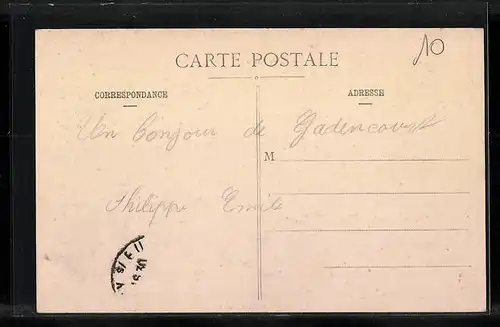 10
CARTE POSTALE
CORRESPONDANCE
ADRESSE
Un bonjour de Gadencourt
M
Philippe Emile